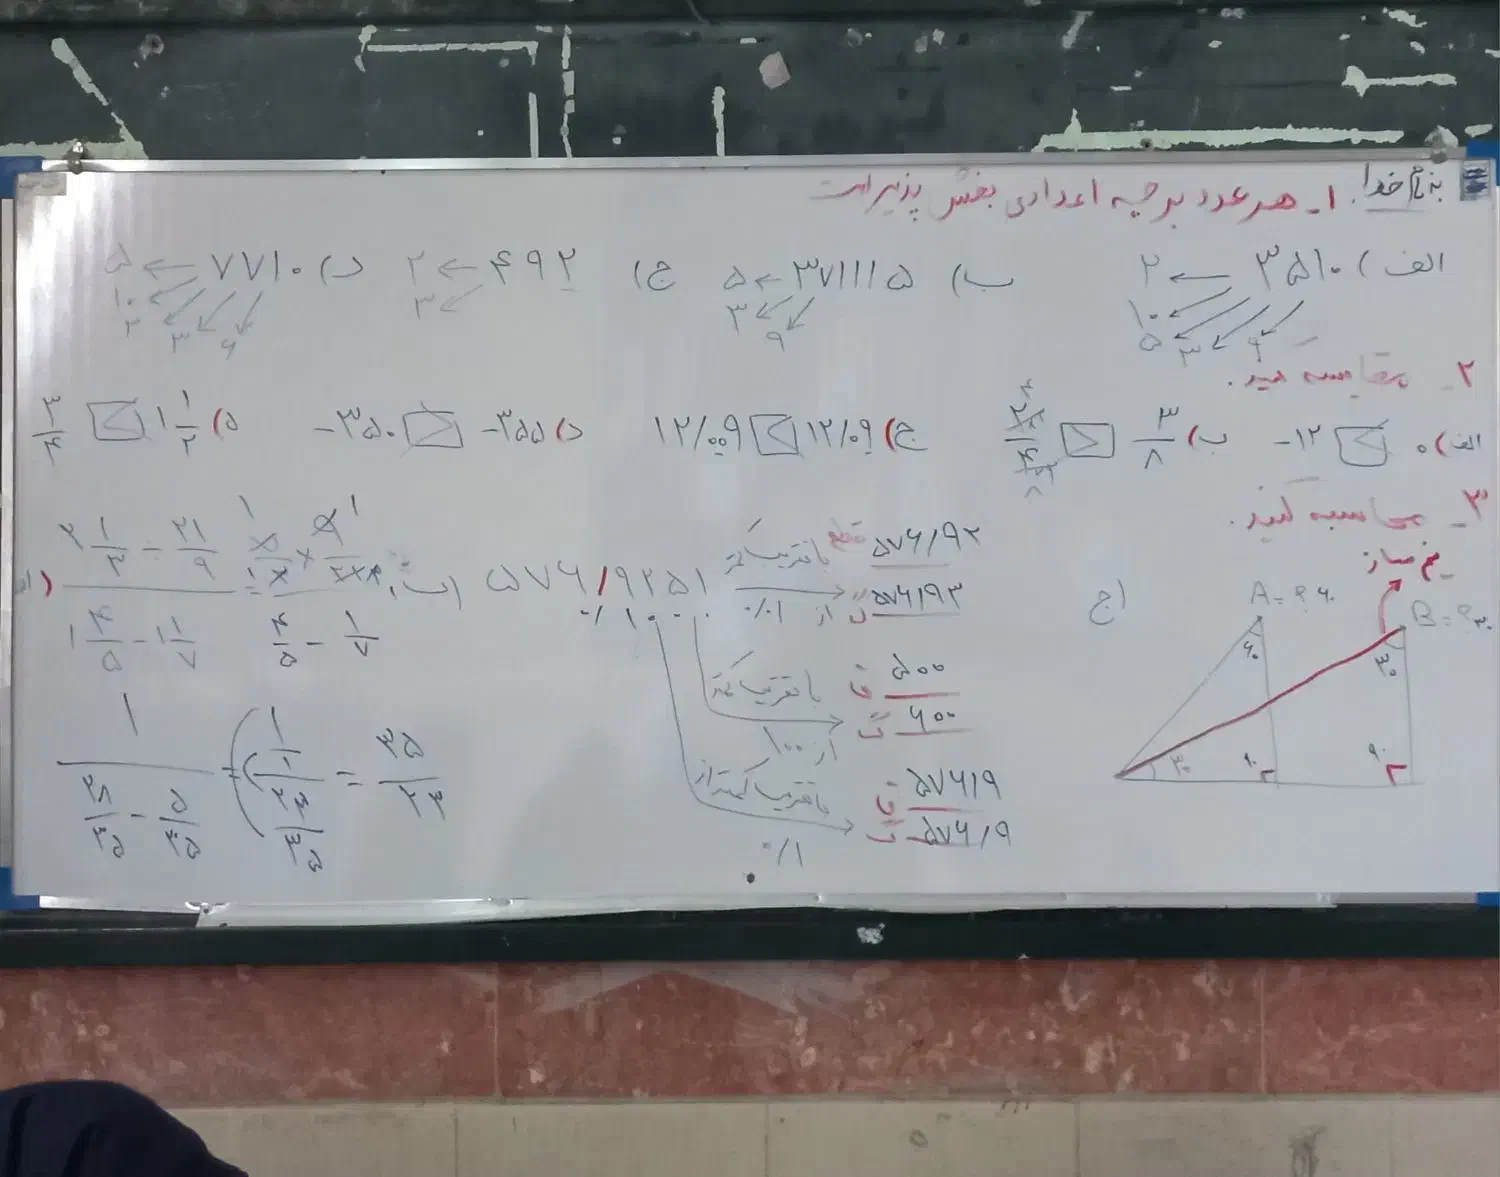 به نام خدا
۱- هر عدد بر چه اعدادی بخش پذیر است
الف) ۳۵۱۰ ← ۲
۱۰
۵ ۳
ب) ۳۷۱۱۱۵ ← ۵
۳ ۹
ج) ۴۹۲ ← ۲
۳
د) ۷۷۱۰ ← ۵
۱۰
۲ ۳ ۶
۲- مقایسه کنید.
الف) ۰ > -۱۲
ب) ۳/۸
ج) ۱۲/۰۹ > ۱۲/۰۰۹
د) -۳۵۵ < -۳۵۰
ه) ۱ ۱/۲ > ۳/۴
۳- محاسبه کنید.
۲ ۱/۳ ÷ ۲۱/۹
۱ ۴/۵ - ۱ ۱/۷
۴/۵ - ۱/۷
۱
۲۸/۳۵ - ۵/۳۵
= ۱/۱ ۲۳/۳۵ = ۳۵/۲۳
ب) ۵۷۶/۹۲۵۱
با تقریب کمتر از ۰/۰۱
قطع ۵۷۶/۹۲
گ ۵۷۶/۹۳
با تقریب کمتر از ۱۰۰
ق ۵۰۰
گ ۶۰۰
با تقریب کمتر از ۰/۱
ق ۵۷۶/۹
گ ۵۷۶/۹
ج)
نیم ساز
A = ? ۶۰
B = ? ۳۰
۶۰
۳۰
۳۰
۹۰
۹۰